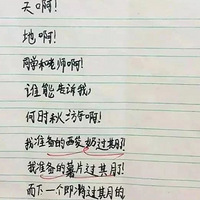 天啊！
地啊！
同学和老师啊！
谁能告诉我，
何时秋坊啊！
我准备的西发奶过其月了！
我准备的薯片过其月了！
而下一个即将过其月的